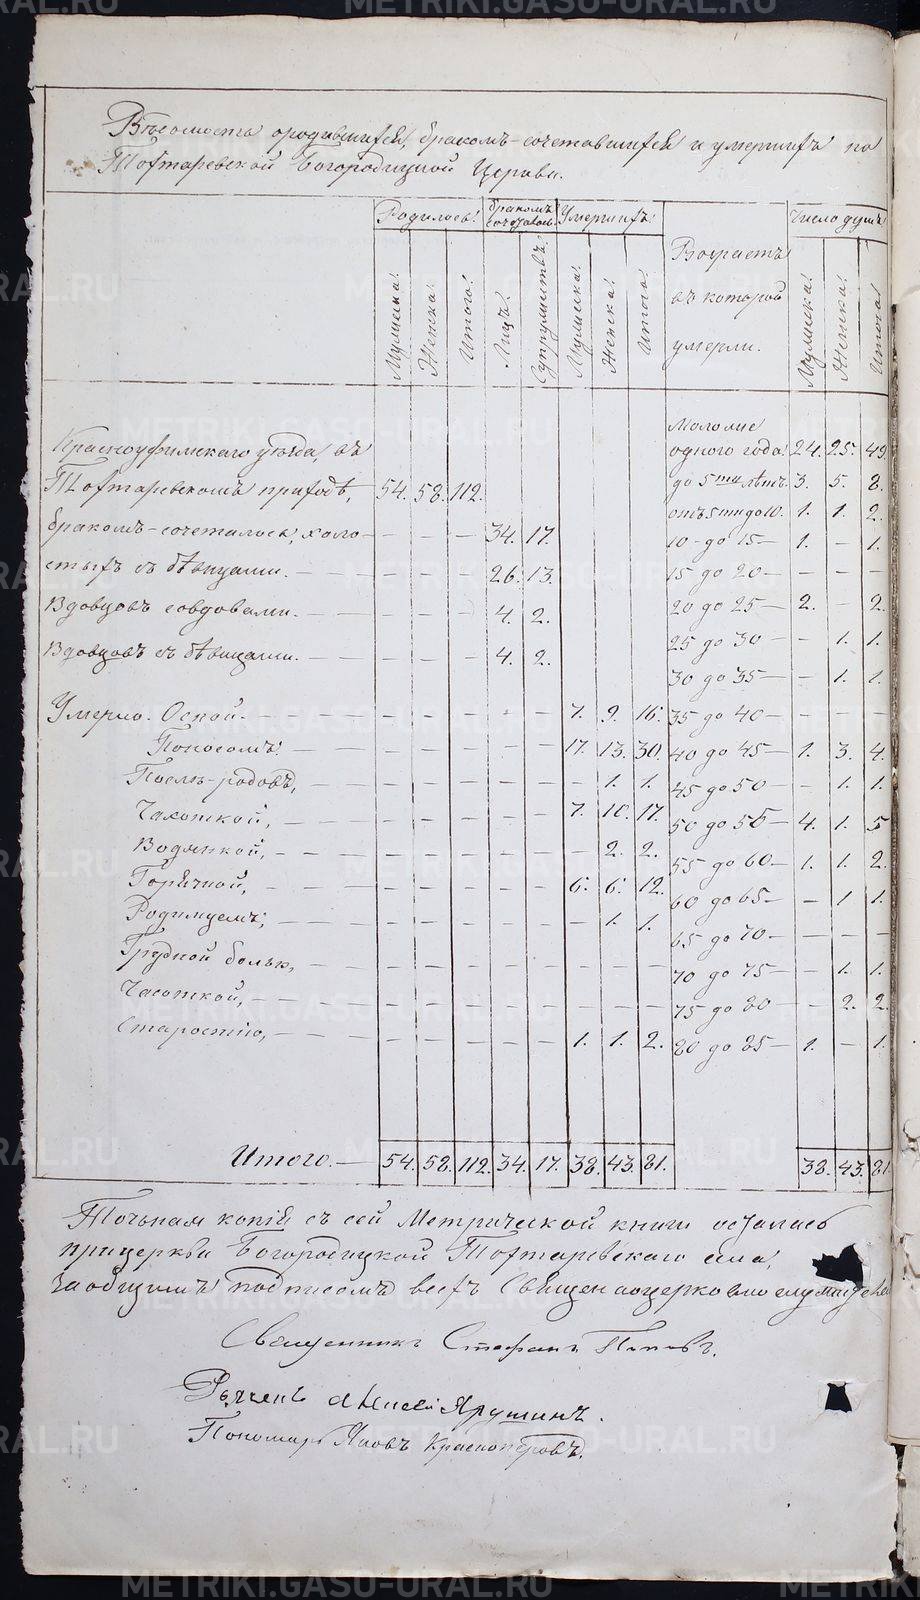 Вѣдомость о родившихся, бракомъ-сочетавшихся и умершихъ по
Тохтаревской Богородицкой Церкви.
Родилось. Бракомъ сочеталось. Умершихъ. Возрастъ въ которомъ умерли. Число душъ.
Мужска. Женска. Итого. Лицъ. Супружествъ. Мужска. Женска. Итого. Мужска. Женска. Итого.
Красноуфимскаго уѣзда, въ
Тохтаревскомъ приходѣ, 54. 58. 112.
бракомъ-сочеталось, холо- — — — 34. 17.
стыхъ съ дѣвицами. — — — — 26. 13.
Вдовцовъ совдовами. — — — — 4. 2.
Вдовцовъ съ дѣвицами. — — — — 4. 2.
Умерло. Оспой. — — — — — — 7. 9. 16.
Поносомъ. — — — — — — 17. 13. 30.
Послѣ-родовъ, — — — — — — — 1. 1.
Чахоткой, — — — — — — 7. 10. 17.
Водянкой, — — — — — — — 2. 2.
Горячкой, — — — — — — 6. 6. 12.
Родимцемъ, — — — — — — — 1. 1.
Грудной больн, — — — — — — — — —
Чахоткой, — — — — — — — — —
Старостію, — — — — — — 1. 1. 2.
Итого. — 54. 58. 112. 34. 17. 38. 43. 81.
Моложе
одного года. 24. 25. 49.
до 5ти лѣтъ. 3. 5. 8.
отъ 5ти до 10. 1. 1. 2.
10 - до 15 — 1. — 1.
15 до 20 — — — —
20 до 25 — 2. — 2.
25 до 30 — — 1. 1.
30 до 35 — — 1. 1.
35 до 40 — — — —
40 до 45 — 1. 3. 4.
45 до 50 — — 1. 1.
50 до 55 — 4. 1. 5
55 до 60 — 1. 1. 2.
60 до 65 — — 1 1.
65 до 70 — — — —
70 до 75 — — 1. 1.
75 до 80 — — 2. 2.
80 до 85 — 1. — 1.
38. 43. 81
Точьная копія съ сей Метрической книги осталась
прицеркви Богородицкой Тохтаревскаго села,
за общимъ подписомъ всехъ
Священникъ Стефанъ Поповъ.
Дьячекъ Алексей Ярушинъ.
Пономарь Яковъ Красноперовъ.
METRIKI.GASO-URAL.RU